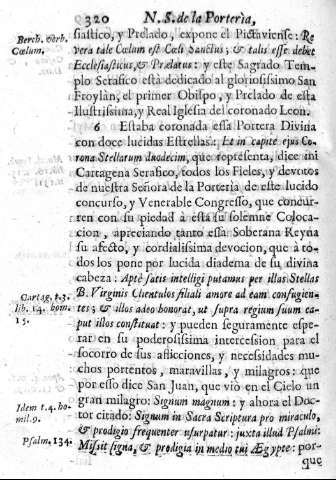 320 N. S. de la Porterìa,
Berch. verb. Cœlum.
siastico, y Prelado, expone el Pictaviense: Re
vera tale Cœlum est Cœli Sanctius; & talis esse debet
Ecclesiasticus, & Prælatus: y este Sagrado Tem-
plo Serafico està dedicado al gloriosissimo San
Froylàn, el primer Obispo, y Prelado de esta
Ilustrissima, y Real Iglesia del coronado Leon.
6 Estaba coronada essa Portera Divina
con doce lucidas Estrellas: Et in capite ejus Co-
rona Stellarum duodecim, que representa, dice mi
Cartagena Serafico, todos los Fieles, y devotos
de nuestra Señora de la Porterìa de este lucido
concurso, y Venerable Congresso, que concur-
ren con su piedad à esta su solemne Coloca-
cion, apreciando tanto essa Soberana Reyna
su afecto, y cordialissima devocion, que à to-
dos los pone por lucida diadema de su divina
cabeza: Aptè satis intelligi putamus per illas Stellas
Cartag. t. 3. lib. 14. hom. 15.
B. Virginis Clientulos filiali amore ad eam confugien-
tes; & illos adeo honorat, ut supra regium suum ca-
put illos constituat: y pueden seguramente espe-
rar en su poderosissima intercession para el
socorro de sus aflicciones, y necessidades mu-
chos portentos, maravillas, y milagros: que
por esso dice San Juan, que viò en el Cielo un
Idem t. 4. ho- mil. 9.
gran milagro: Signum magnum: y ahora el Doc-
tor citado: Signum in Sacra Scriptura pro miraculo,
& prodigio frequenter usurpatur: juxta illud Psalmi:
Psalm. 134.
Missit signa, & prodigia in medio tui Ægypte: por-
que